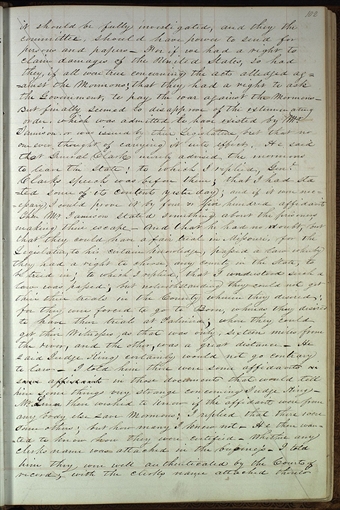 102
it should be fully investigated, and they the
committee, should have power to send for
persons and papers— For if we had a right to
claim damages of the United States, so had
they, if all was true concerning the acts alledged ag-
ainst the Mormons; that they had a right to ask
the Government, to pay the war against the Mormons—
But finally seemed to disapprove of the exterminating
order which was admitted to have existed by Mr
Jamison or was issued by their Legislature but that no
one ever thought of carrying it into effect. He said
that General Clark merely advised the mormons
to leave the State: To which I replied, Genl
Clarks speech was before them; that I had sta-
ted some of its contents yesterday; and if it were nec-
essary I could prove it by four or five hundred affidavits
Then Mr Jamison stated something about the prisoners
making their escape— And that he had no doubt, but
that they could have a fair trial in Missouri for the
Legislature, to his certain knowledge, passed a law whereby
they had a right to choose any county in the State, to
be tried in; to which I replied, that I understood such a
law was passed, but notwithstanding they could not get
their trials in the County wherein they desired;
for they were forced to go to Boon, whereas they desired
to have their trials at Palmyra, where they could
get their Witnesses, as that was only sixteen miles from
the river, and the other was a great distance— He
said Judge King certainly would not go contrary
to law— I told him there were some affidavits in
in those documents that would tell
him some things very strange concerning Judge King—
He then wished to know if the affidavits were from
any body else save Mormons; I replied that there were
some others; but how many I knew not— He then wan-
ted to know how they were certified— Whether any
clerks name was attached in the business— I told
him they were well authenticated by the Courts of
record, with the clerks name attached thereto